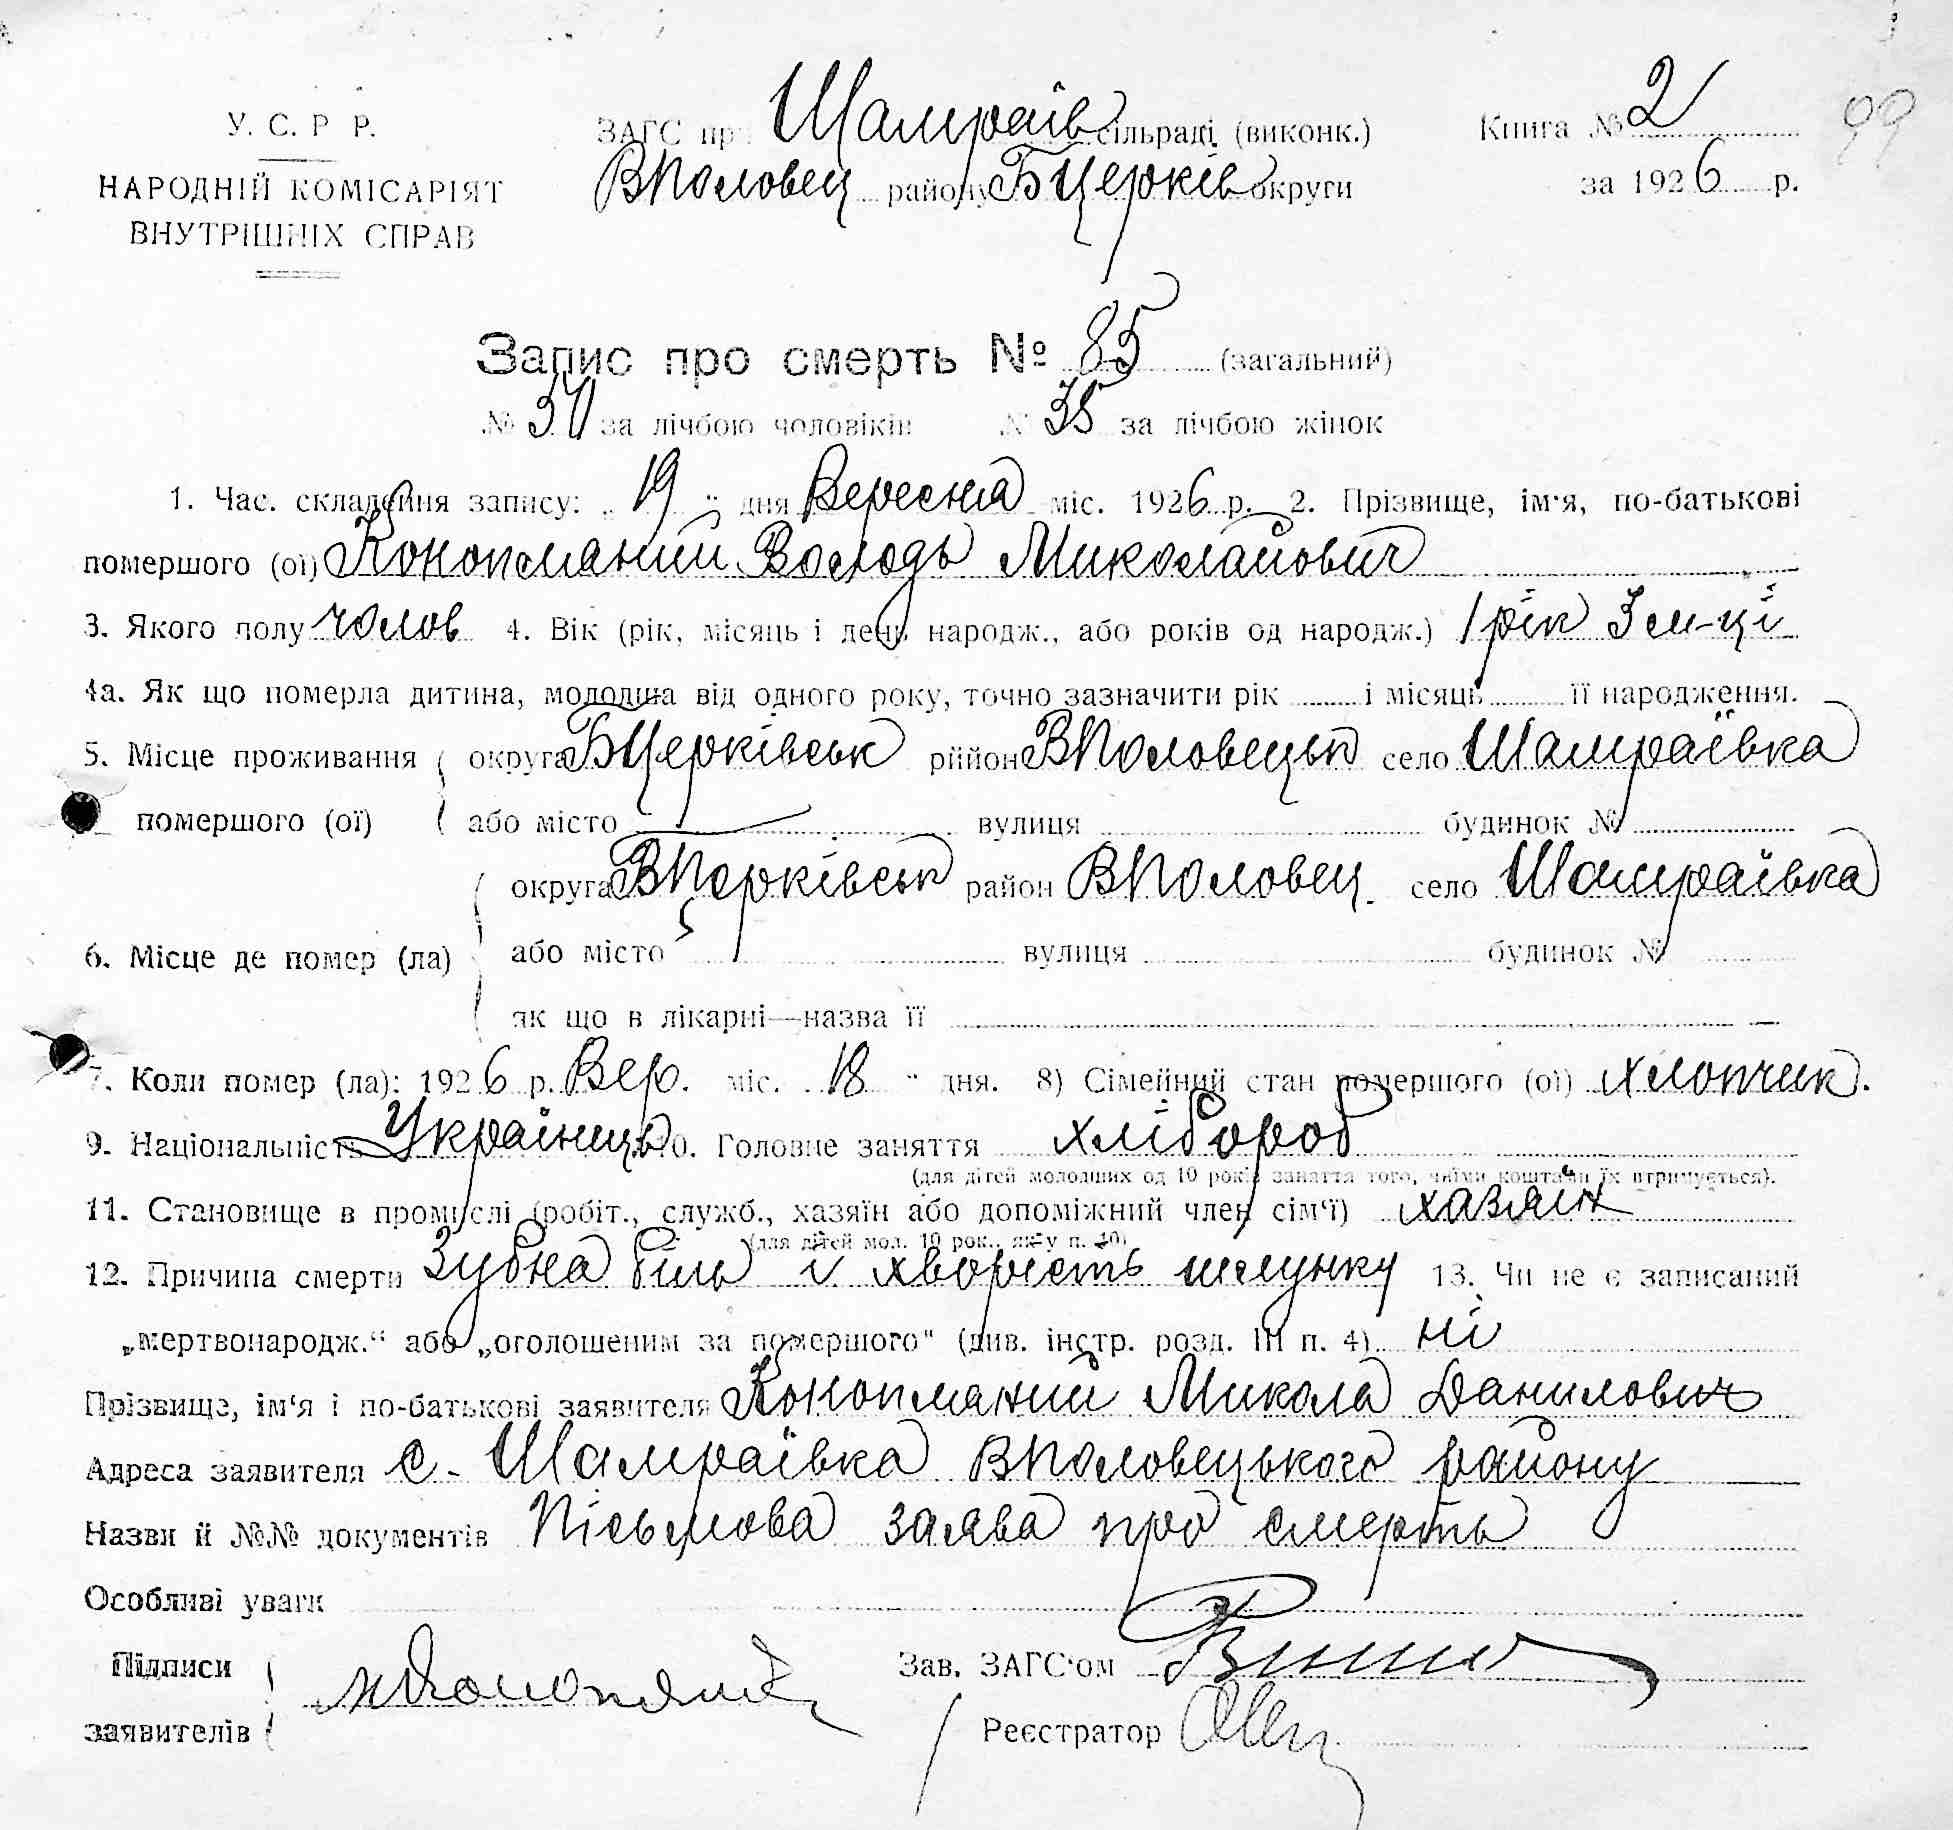 У. С. Р Р.
НАРОДНІЙ КОМІСАРІЯТ
ВНУТРІШНІХ СПРАВ
ЗАГС пр Шамраїв сільраді (виконк.)
ВПоловец району БЦерків округи
Книга № 2
за 1926 р.
99
Запис про смерть № 85 (загальний)
№ 50 за лічбою чоловіків № 35 за лічбою жінок
1. Час. складення запису: „19" дня Вересня міс. 1926 р. 2. Прізвище, ім'я, по-батькові
помершого (ої) Конопляний Володь Миколайович
3. Якого полу чолов 4. Вік (рік, місяць і день народж., або років од народж.) 1 рік 3 м-ці
4а. Як що померла дитина, молодша від одного року, точно зазначити рік і місяць її народження.
5. Місце проживання помершого (ої) округа БЦерківськ район ВПоловецьк село Шамраївка
або місто вулиця будинок №
6. Місце де помер (ла) округа БЦерківськ район ВПоловец. село Шамраївка
або місто вулиця будинок №
як що в лікарні—назва її
7. Коли помер (ла): 1926 р. Вер. міс. 18 " дня. 8) Сімейний стан помершого (ої) хлопчик.
9. Національність Українець 10. Головне заняття хлібороб
(для дітей молодших од 10 років заняття того, чиїми коштами їх втримується).
11. Становище в промислі (робіт., служб., хазяїн або допоміжний член сім'ї) хазяїн
(для дітей мол. 10 рок., як у п. 10)
12. Причина смерти Зубна біль і хворість шлунку 13. Чи не є записаний
„мертвонародж." або „оголошеним за помершого" (див. інстр. розд. III п. 4) ні
Прізвище, ім'я і по-батькові заявителя Конопляний Микола Данилович
Адреса заявителя с. Шамраївка ВПоловецького району
Назви й №№ документів Пісьмова заява про смерть
Особливі уваги
Підписи заявителів
Зав. ЗАГС'ом
Реєстратор